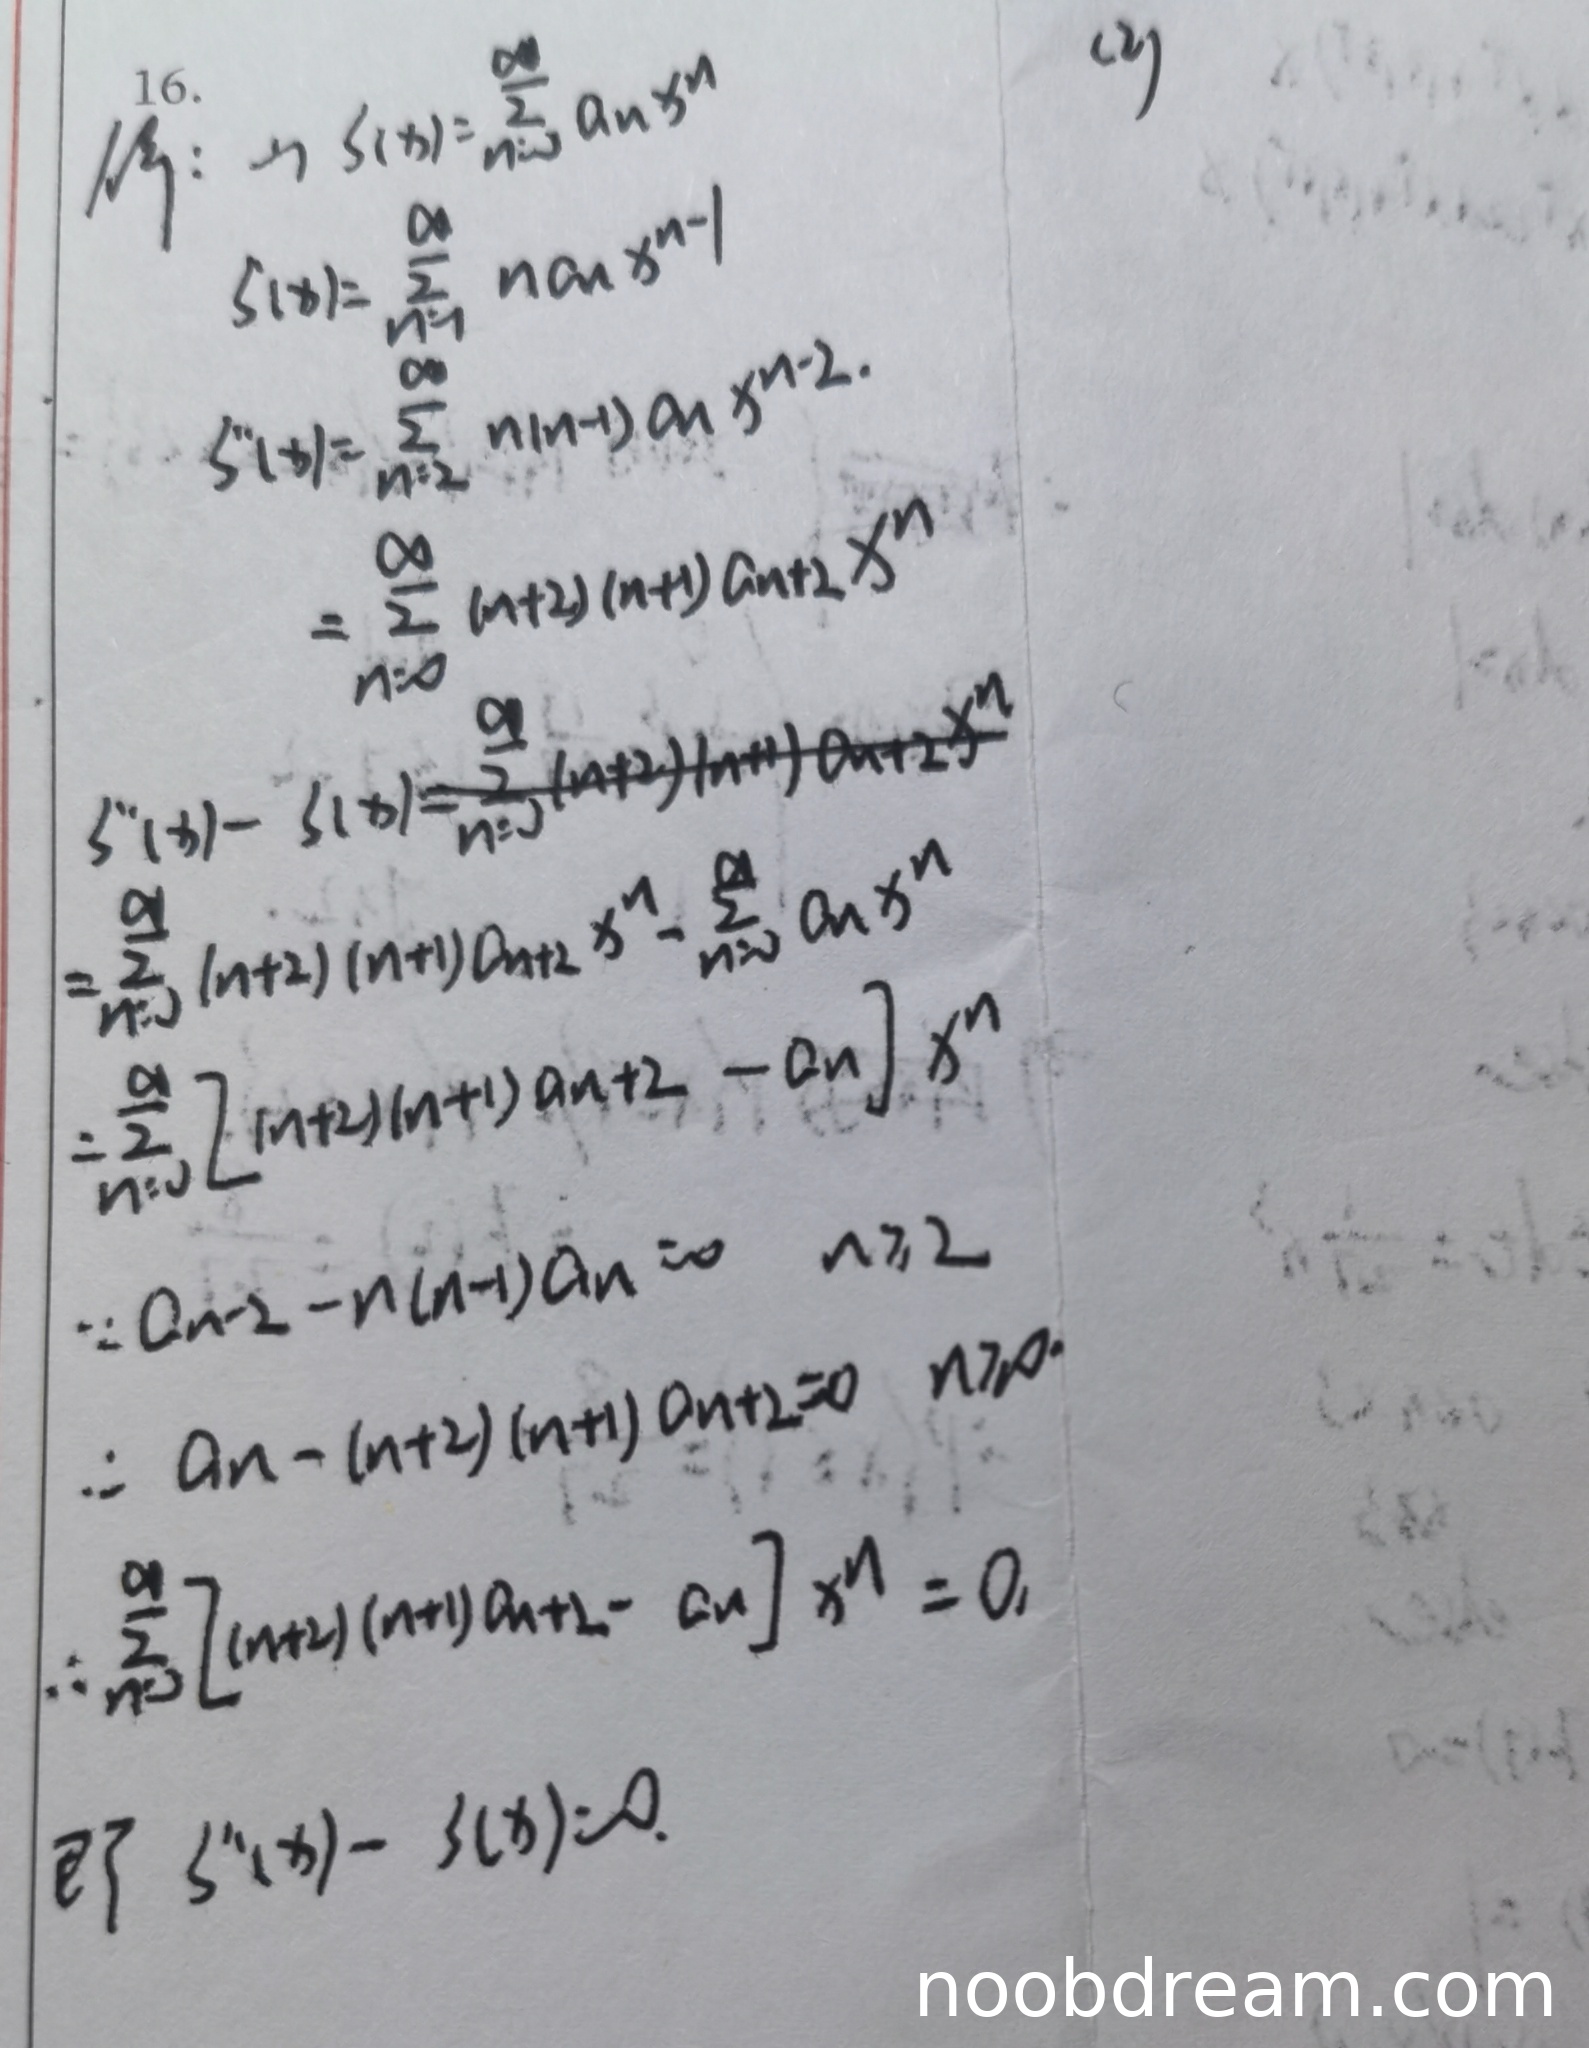 16.
解: (1) S(x)=∑_{n=0}^{∞} a_n x^n
S(x)=∑_{n=1}^{∞} n a_n x^{n-1}
S''(x)=∑_{n=2}^{∞} n(n-1) a_n x^{n-2}.
=∑_{n=0}^{∞} (n+2)(n+1) a_{n+2} x^n
S''(x)- S(x)=∑_{n=0}^{∞} (n+2)(n+1) a_{n+2} x^n
=∑_{n=0}^{∞} (n+2)(n+1) a_{n+2} x^n - ∑_{n=0}^{∞} a_n x^n
=∑_{n=0}^{∞} [(n+2)(n+1) a_{n+2} - a_n] x^n
∵ a_{n-2} - n(n-1) a_n =0 n≥2
∴ a_n - (n+2)(n+1) a_{n+2}=0 n≥0.
∴ ∑_{n=0}^{∞} [(n+2)(n+1) a_{n+2} - a_n] x^n = 0.
即 S''(x) - S(x)=0.
(2)
noobdream.com